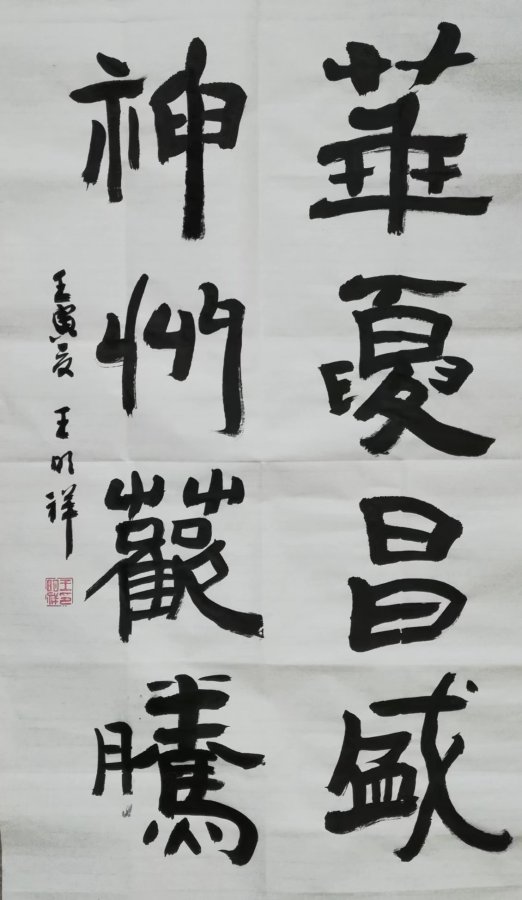 華夏昌盛
神州歡騰
壬寅夏 王明祥